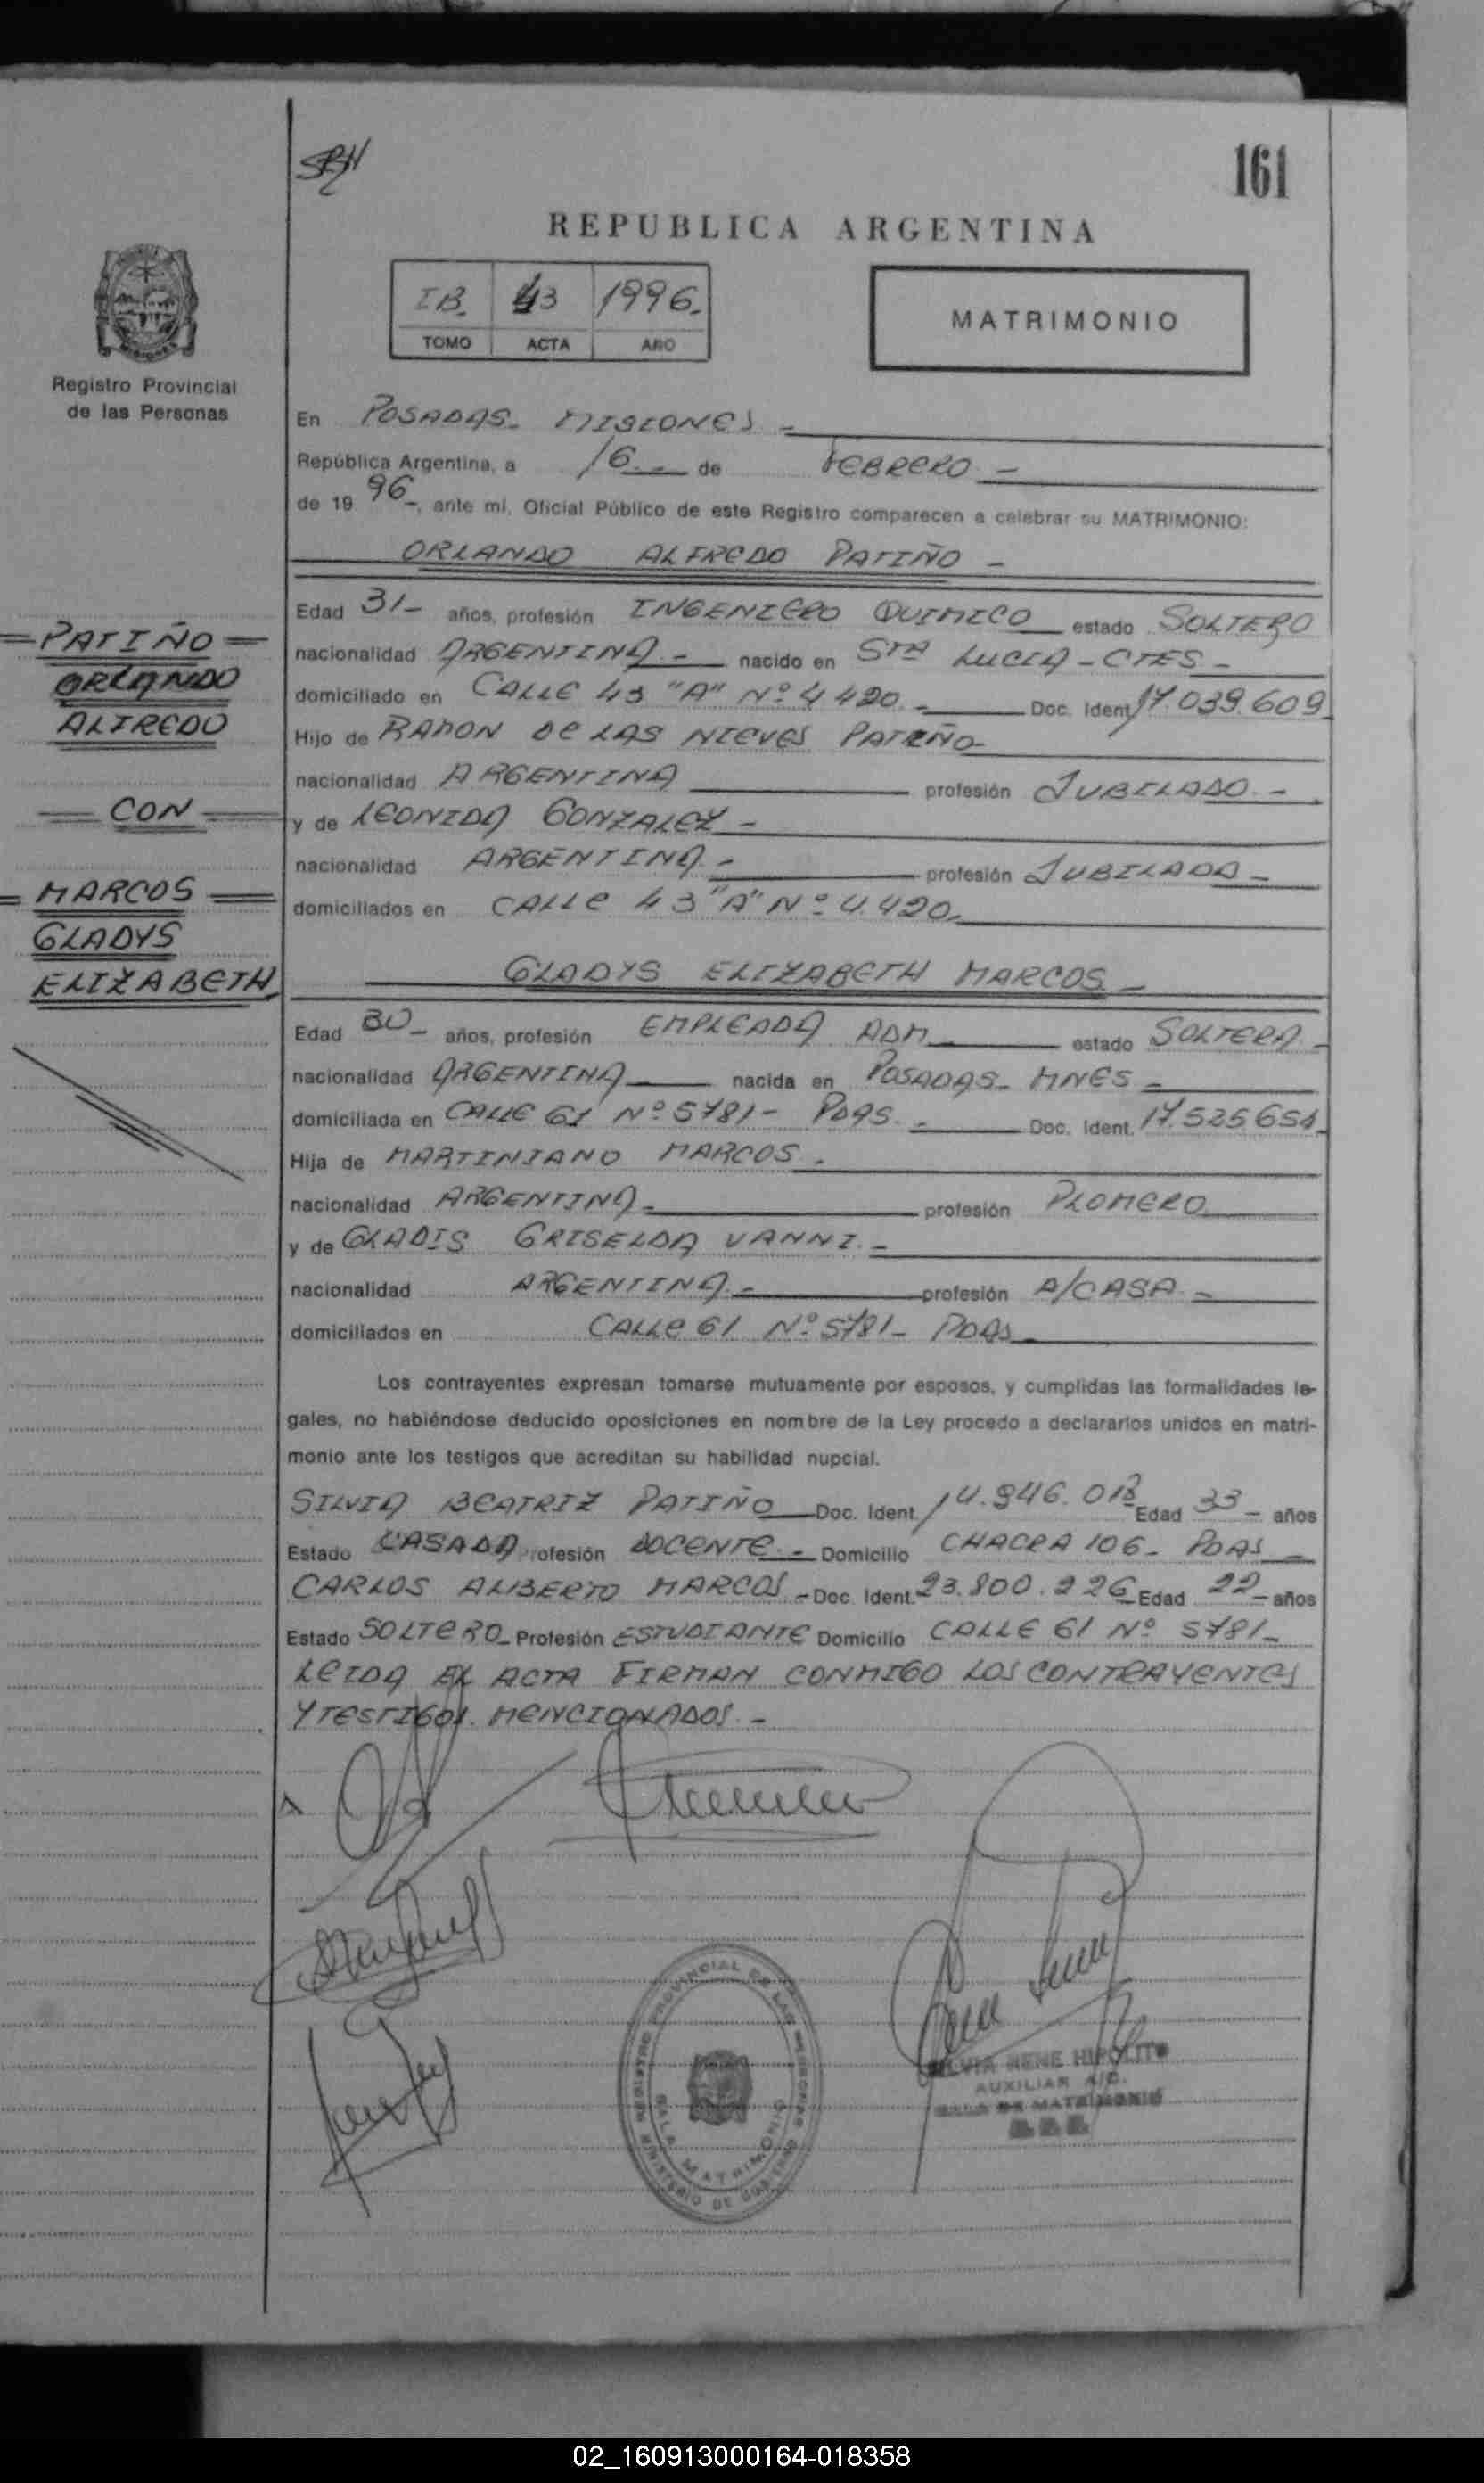 161
REPUBLICA ARGENTINA
IB. 43 1996.
TOMO ACTA AÑO
MATRIMONIO
Registro Provincial
de las Personas
En POSADAS - MISIONES -
República Argentina, a 16 de FEBRERO -
de 19 96-, ante mí, Oficial Público de este Registro comparecen a celebrar su MATRIMONIO:
ORLANDO ALFREDO PATIÑO -
Edad 31- años, profesión INGENIERO QUIMICO estado SOLTERO
nacionalidad ARGENTINA - nacido en STA LUCIA - CTES -
domiciliado en CALLE 43 "A" Nº 4420. - Doc. Ident. 17.039.609
Hijo de RAMON DE LAS NIEVES PATIÑO
nacionalidad ARGENTINA profesión JUBILADO -
y de LEONIDA GONZALEZ -
nacionalidad ARGENTINA - profesión JUBILADA -
domiciliados en CALLE 43 "A" Nº 4.420.
= PATIÑO =
ORLANDO
ALFREDO
= CON =
= MARCOS =
GLADYS
ELIZABETH
GLADYS ELIZABETH MARCOS -
Edad 30- años, profesión EMPLEADA ADM estado SOLTERA -
nacionalidad ARGENTINA nacida en POSADAS - MNES -
domiciliada en CALLE 61 Nº 5781 - PDAS. - Doc. Ident.
Hija de MARTINIANO MARCOS .
nacionalidad ARGENTINA - profesión PLOMERO
y de GLADIS GRISELDA VANNI. -
nacionalidad ARGENTINA - profesión A/CASA -
domiciliados en CALLE 61 Nº 5781 - PDAS
Los contrayentes expresan tomarse mutuamente por esposos, y cumplidas las formalidades le-
gales, no habiéndose deducido oposiciones en nombre de la Ley procedo a declararlos unidos en matri-
monio ante los testigos que acreditan su habilidad nupcial.
SILVIA BEATRIZ PATIÑO Doc. Ident. Edad 33 - años
Estado CASADA Profesión DOCENTE - Domicilio CHACRA 106 - PDAS -
CARLOS ALBERTO MARCOS - Doc. Ident. 23.800.226 Edad 22 - años
Estado SOLTERO - Profesión ESTUDIANTE Domicilio CALLE 61 Nº 5781 -
LEIDA EL ACTA FIRMAN CONMIGO LOS CONTRAYENTES
Y TESTIGOS MENCIONADOS. -
REGISTRO PROVINCIAL DE LAS PERSONAS
SALA MATRIMONIO
MINISTERIO DE GOBIERNO
SILVIA RENE HIPOLITO
AUXILIAR A/C.
SALA DE MATRIMONIO
02_160913000164-018358